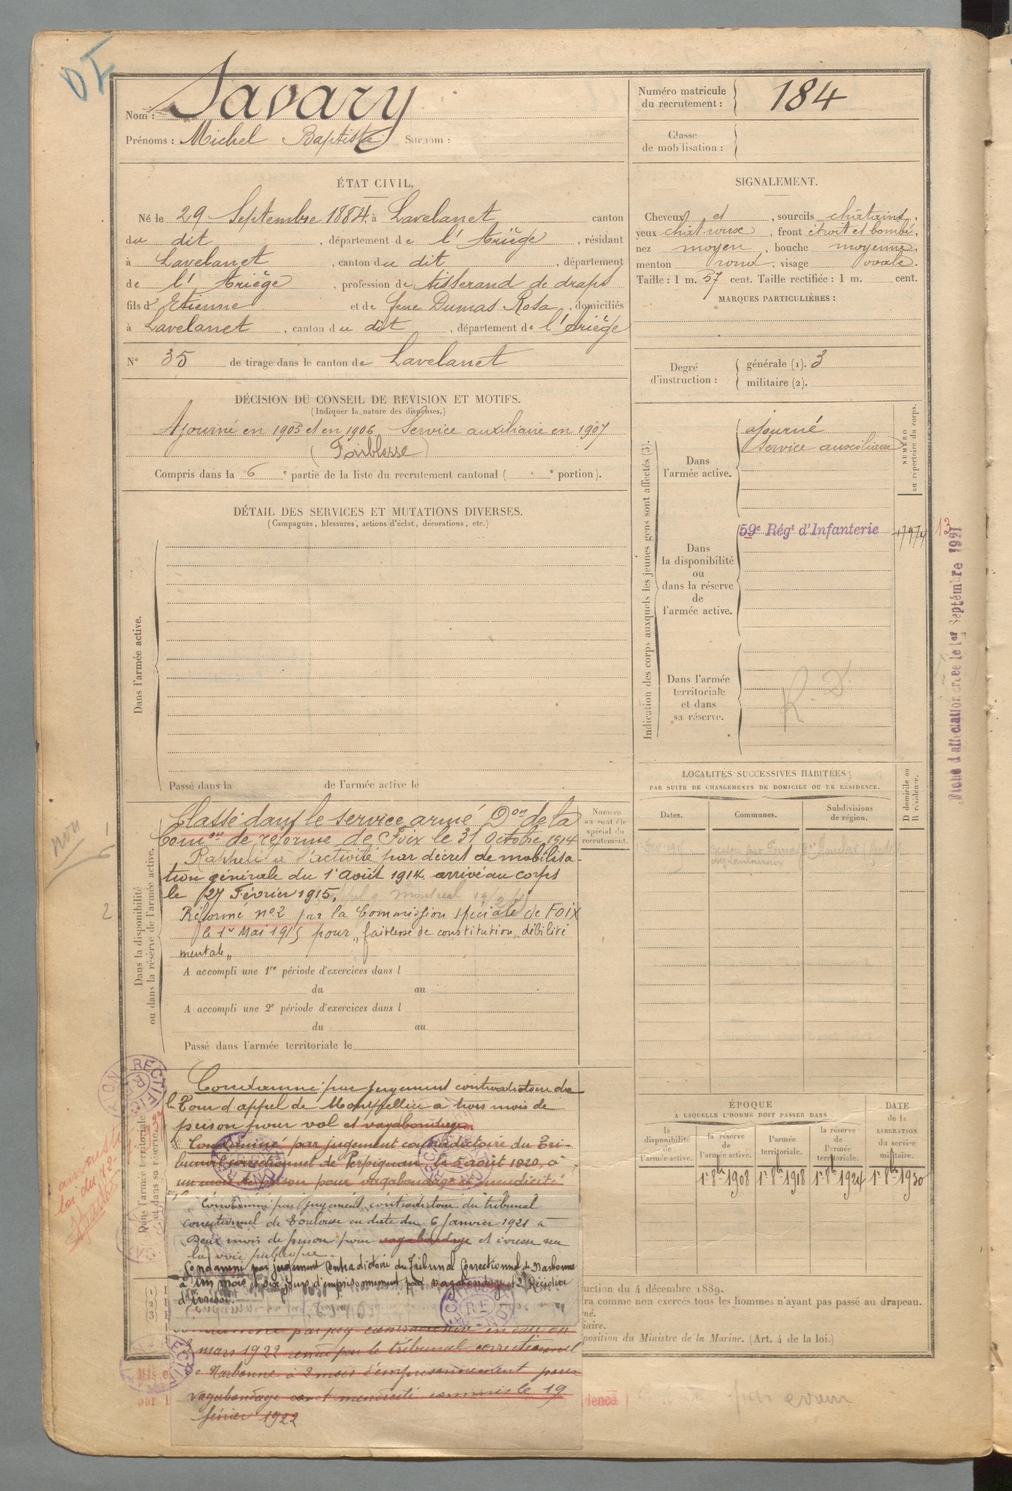 Nom : Savary
Prénoms : Michel Baptiste Surnom :
Numéro matricule
du recrutement : 184
Classe
de mobilisation :
ÉTAT CIVIL.
Né le 29 Septembre 1884, à Lavelanet canton
du dit, département de l'Ariège, résidant
à Lavelanet, canton du dit, département
de l'Ariège, profession de tisserand de draps
fils d'Etienne et de feue Dumas Rosa, domiciliés
à Lavelanet, canton du dit, département de l'Ariège
N° 35 de tirage dans le canton de Lavelanet
SIGNALEMENT.
Cheveux et, sourcils châtains,
yeux chât. roux, front étroit et bombé,
nez moyen, bouche moyenne,
menton rond, visage ovale.
Taille : 1 m. 57 cent. Taille rectifiée : 1 m. cent.
MARQUES PARTICULIÈRES :
Degré
d'instruction :
générale (1). 3
militaire (2).
DÉCISION DU CONSEIL DE REVISION ET MOTIFS.
(Indiquer la nature des dispenses.)
Ajourné en 1905 et en 1906, Service auxiliaire en 1907
(Faiblesse)
Compris dans la 6e partie de la liste du recrutement cantonal ( e portion).
DÉTAIL DES SERVICES ET MUTATIONS DIVERSES.
(Campagnes, blessures, actions d'éclat, décorations, etc.)
Dans l'armée active.
Passé dans la de l'armée active le
Indication des corps auxquels les jeunes gens sont affectés (3).
NUMÉRO
au répertoire du corps.
Dans
l'armée active.
ajourné
Service auxiliaire
Dans
la disponibilité
ou
dans la réserve
de
l'armée active.
59e Régt d'Infanterie
13
Dans l'armée
territoriale
et dans
sa réserve.
R. D
Fiche d'affectation créée le 1er Septembre 1921
non
Dans la disponibilité
ou dans la réserve de l'armée active.
Classé dans le service armé Don de la
Comon de réforme de Foix le 31 Octobre 1914
Rappelé à l'activité par décret de mobilisa-
tion générale du 1er Août 1914. arrivé au corps
le 27 Février 1915,
Réformé n°2 par la Commission spéciale de FOIX
le 1er Mai 1915 pour "faiblesse de constitution, débilité
mentale"
A accompli une 1re période d'exercices dans l
du au
A accompli une 2e période d'exercices dans l
du au
Passé dans l'armée territoriale le
Numéros
spécial du
recrutement.
LOCALITÉS SUCCESSIVES HABITÉES
PAR SUITE DE CHANGEMENTS DE DOMICILE OU DE RÉSIDENCE.
Dates.
Communes.
Subdivisions
de région.
D domicile ou
R résidence.
ÉPOQUE
A LAQUELLE L'HOMME DOIT PASSER DANS
la
disponibilité
de
l'armée active.
la réserve
de
l'armée active.
l'armée
territoriale.
la réserve
de
l'armée
territoriale.
DATE
de la
LIBÉRATION
du service
militaire.
1er 8bre 1908
1er 8bre 1918
1er 8bre 1924
1er 8bre 1930
Dans l'armée territoriale
et dans sa réserve.
Condamné par jugement contradictoire de
la Cour d'appel de Montpellier à trois mois de
prison pour vol et vagabondage.
Condamné par jugement contradictoire du Tri-
bunal correctionnel de Perpignan le 5 août 1920, à
un mois de prison pour vagabondage et mendicité
Condamné par jugement contradictoire du tribunal
correctionnel de Toulouse en date du 6 Janvier 1921 à
Deux mois de prison pour vagabondage et ivresse sur
la voie publique.
Condamné par jugement Contradictoire du Tribunal Correctionnel de Narbonne
à Un mois et dix jours d'emprisonnement pour vagabondage et récidive
d'ivresse.
mars 1922 rendu par le tribunal correctionnel
de Narbonne à 2 mois d'emprisonnement pour
vagabondage et mendicité commis le 19
février 1922
RECTIFICATION
ruction du 4 décembre 1889.
ra comme non exercés tous les hommes n'ayant pas passé au drapeau.
position du Ministre de la Marine. (Art. 4 de la loi.)